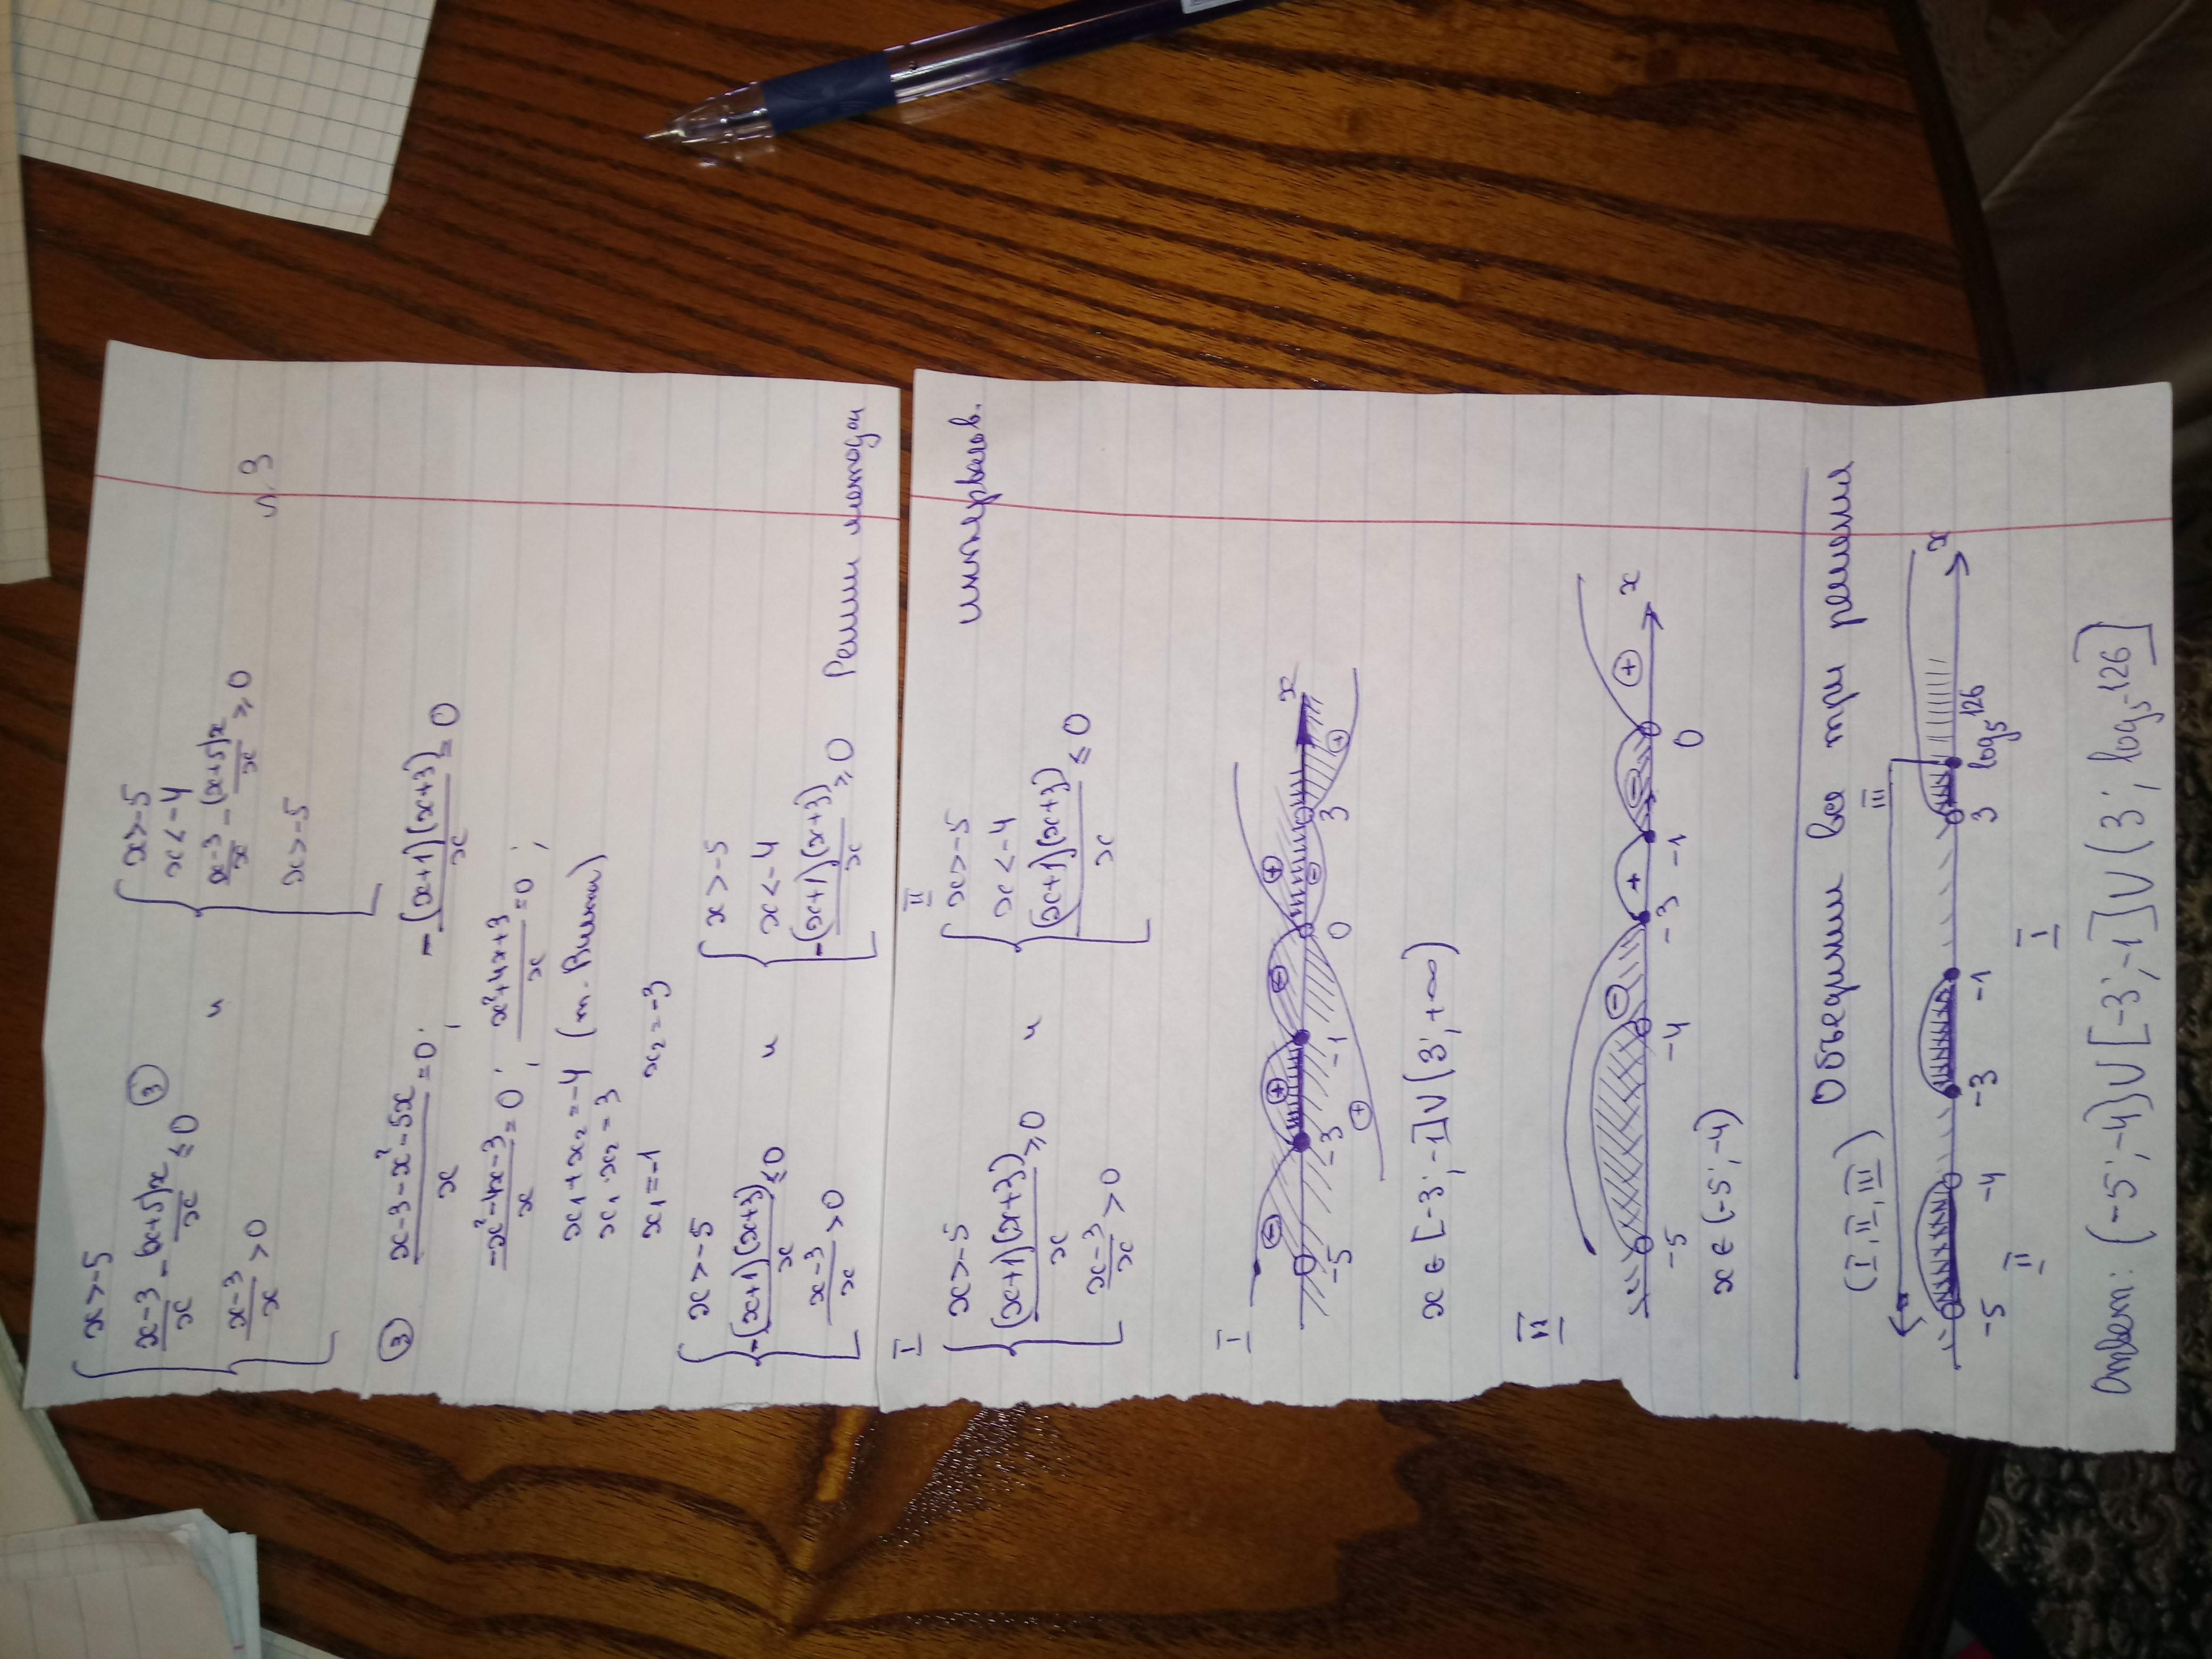 { x>-5
{ x-3/x - (x+5)x/x ≤0 ③
{ x-3/x >0
и
[ { x>-5
{ x<-4
{ x-3/x - (x+5)x/x ≥0
x>-5
n.3
③ x-3-x²-5x/x =0; -(x+1)(x+3)/x =0
-x²-4x-3/x =0; x²+4x+3/x =0;
x₁+x₂=-4 (т. Виета)
x₁·x₂=3
x₁=-1 x₂=-3
{ x>-5
{ -(x+1)(x+3)/x ≤0
{ x-3/x >0
и
{ x>-5
{ x<-4
{ -(x+1)(x+3)/x ≥0 Решим методом
интервалов.
I
{ x>-5
{ (x+1)(x+3)/x ≥0
{ x-3/x >0
и
II
{ x>-5
{ x<-4
{ (x+1)(x+3)/x ≤0
I
- + - +
-5 -3 -1 0 3 x
+ - +
x∈[-3;-1]∪(3;+∞)
II
- + - +
-5 -4 -3 -1 0 x
x∈(-5;-4)
Объединим все три решения
(I, II, III)
III
x
-5 -4 -3 -1 3 log₅126 x
II I
Ответ: (-5;-4)∪[-3;-1]∪(3; log₅126]